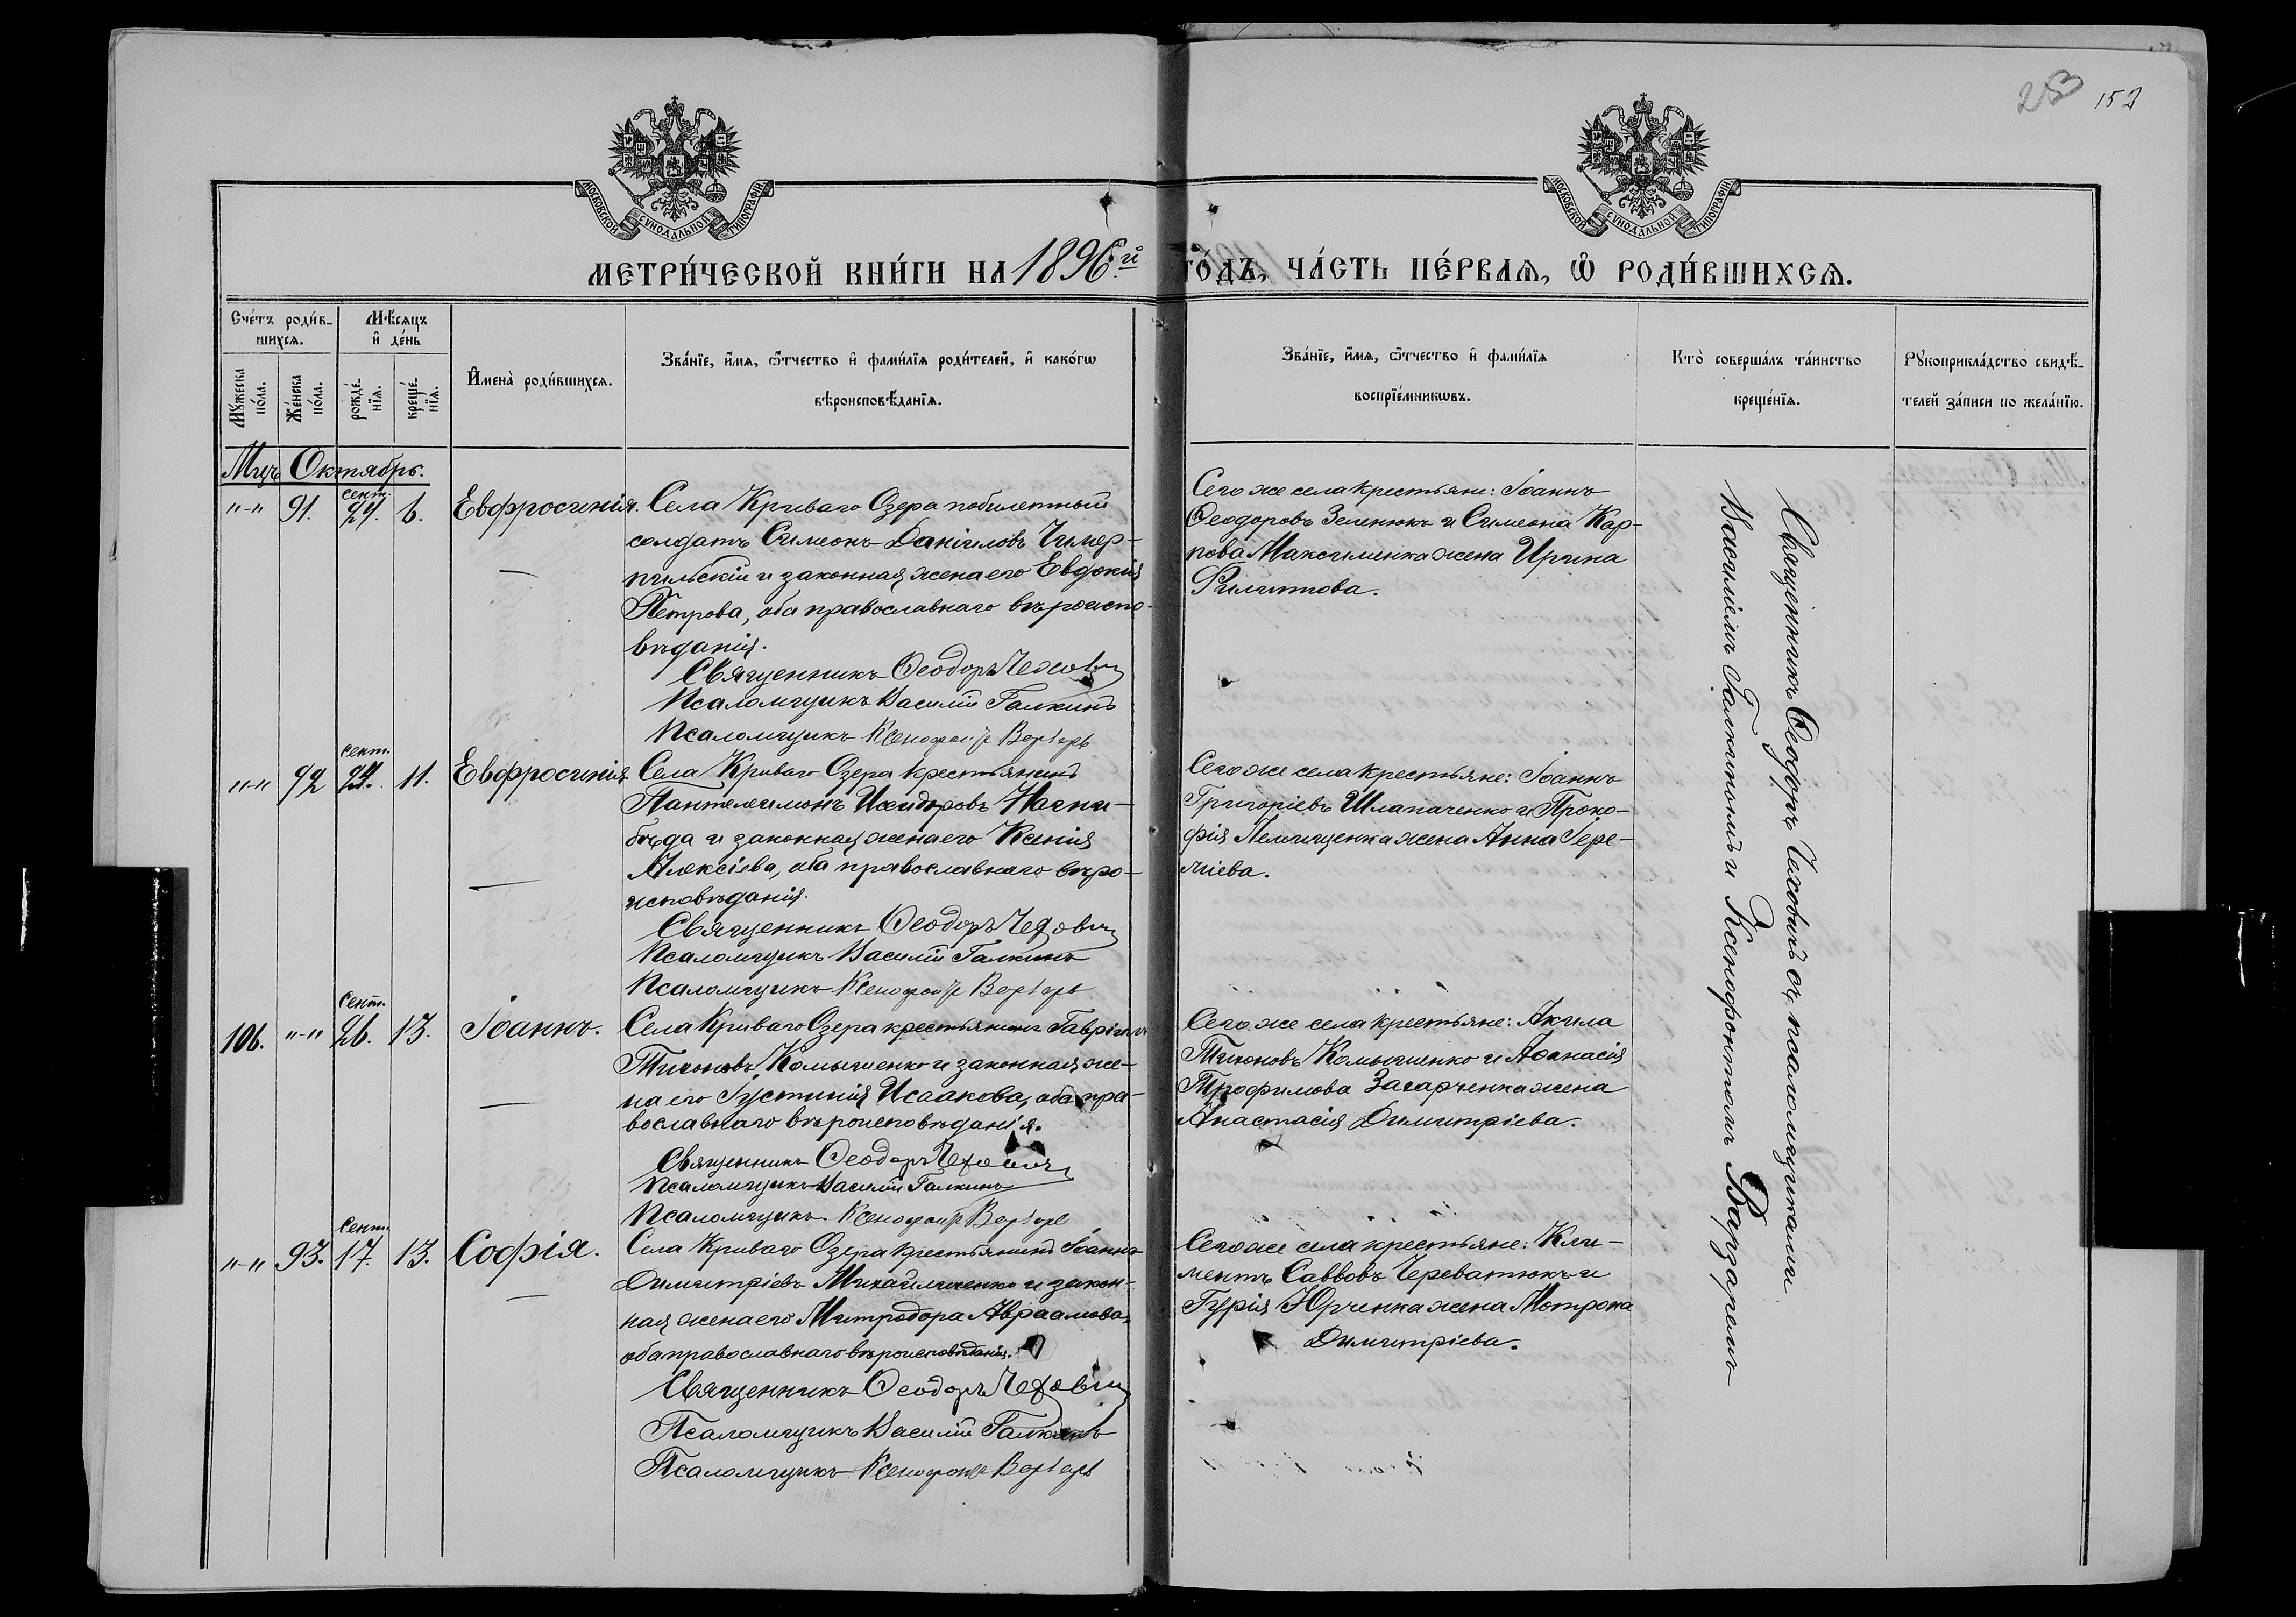 253 152
МОСКОВСКОЙ СѴНОДАЛЬНОЙ ТИПОГРАФІИ
МОСКОВСКОЙ СѴНОДАЛЬНОЙ ТИПОГРАФІИ
МЕТРИ́ЧЕСКОЙ КНИ́ГИ НА 1896.й ГО́ДЪ, ЧА́СТЬ ПЕ́РВАѦ, Ѽ РОДИ́ВШИХСѦ.
Сче́тъ роди́в-
шихсѧ.
Мѣ́сѧцъ
и҆ де́нь
Мꙋ́жеска
по́ла.
Же́нска
по́ла.
рожде́-
нїѧ.
креще́-
нїѧ.
И҆мена̀ роди́вшихсѧ.
Зва́нїе, и҆́мѧ, ѻ҆́тчество и҆ фами́лїѧ роди́телей, и҆ како́гѡ
вѣроисповѣ́данїѧ.
Зва́нїе, и҆́мѧ, ѻ҆́тчество и҆ фами́лїѧ
воспрїе́мникѡвъ.
Кто̀ соверша́лъ та́инство
креще́нїѧ.
Рꙋкоприкла́дство свидѣ́-
телей за́писи по жела́нїю.
Мцъ Октябрь.
"-" 91. сент. 24. 6. Евфросинія.
Села Криваго Озера побилетный
солдатъ Симеонъ Даніиловъ Чимер-
пильскій и законная жена его Евдокія
Петрова, оба православнаго вѣроиспо-
вѣданія.
Священникъ Ѳеодоръ Чеховичъ
Псаломщикъ Василій Галкинъ
Псаломщикъ Ксенофонтъ
Сего же села крестьяне: Іоаннъ
Ѳеодоровъ Зеленюкъ и Симеона Кар-
пова Максименка жена Ирина
Филиппова.
"-" 92 сент. 24. 11. Евфросинія.
Села Криваго Озера крестьянинъ
Пантелеимонъ Исидоровъ Нагни-
бѣда и законная жена его Ксенія
Алексіева, оба православнаго вѣро-
исповѣданія.
Священникъ Ѳеодоръ Чеховичъ
Псаломщикъ Василій Галкинъ
Псаломщикъ Ксенофонтъ
Сего же села крестьяне: Іоаннъ
Григоріевъ Шлапаченко и Проко-
фія Лемищенка жена Анна Іере-
міева.
106. "-" Сент. 26. 13. Іоаннъ.
Села Криваго Озера крестьянинъ Гавріилъ
Тихоновъ Комышенко и законная же-
на его Іустинія Исаакова, оба пра-
вославнаго вѣроисповѣданія.
Священникъ Ѳеодоръ Чеховичъ
Псаломщикъ Василій Галкинъ
Псаломщикъ Ксенофонтъ
Сего же села крестьяне: Акила
Тихоновъ Комышенко и Аѳанасія
Трофимова Захарченка жена
Анастасія Димитріева.
"-" 93. Сент. 17. 13. Софія.
Села Криваго Озера крестьянинъ Іоаннъ
Димитріевъ Михайличенко и закон-
ная жена его Митродора Авраамова,
оба православнаго вѣроисповѣданія.
Священникъ Ѳеодоръ Чеховичъ
Псаломщикъ Василій Галкинъ
Псаломщикъ Ксенофонтъ
Сего же села крестьяне: Кли-
ментъ Саввовъ Череватюкъ и
Гурія Юрченка жена Мотрона
Димитріева.
Священникъ Ѳеодоръ Чеховичъ съ псаломщиками
Василіемъ Галкинымъ и Ксенофонтомъ